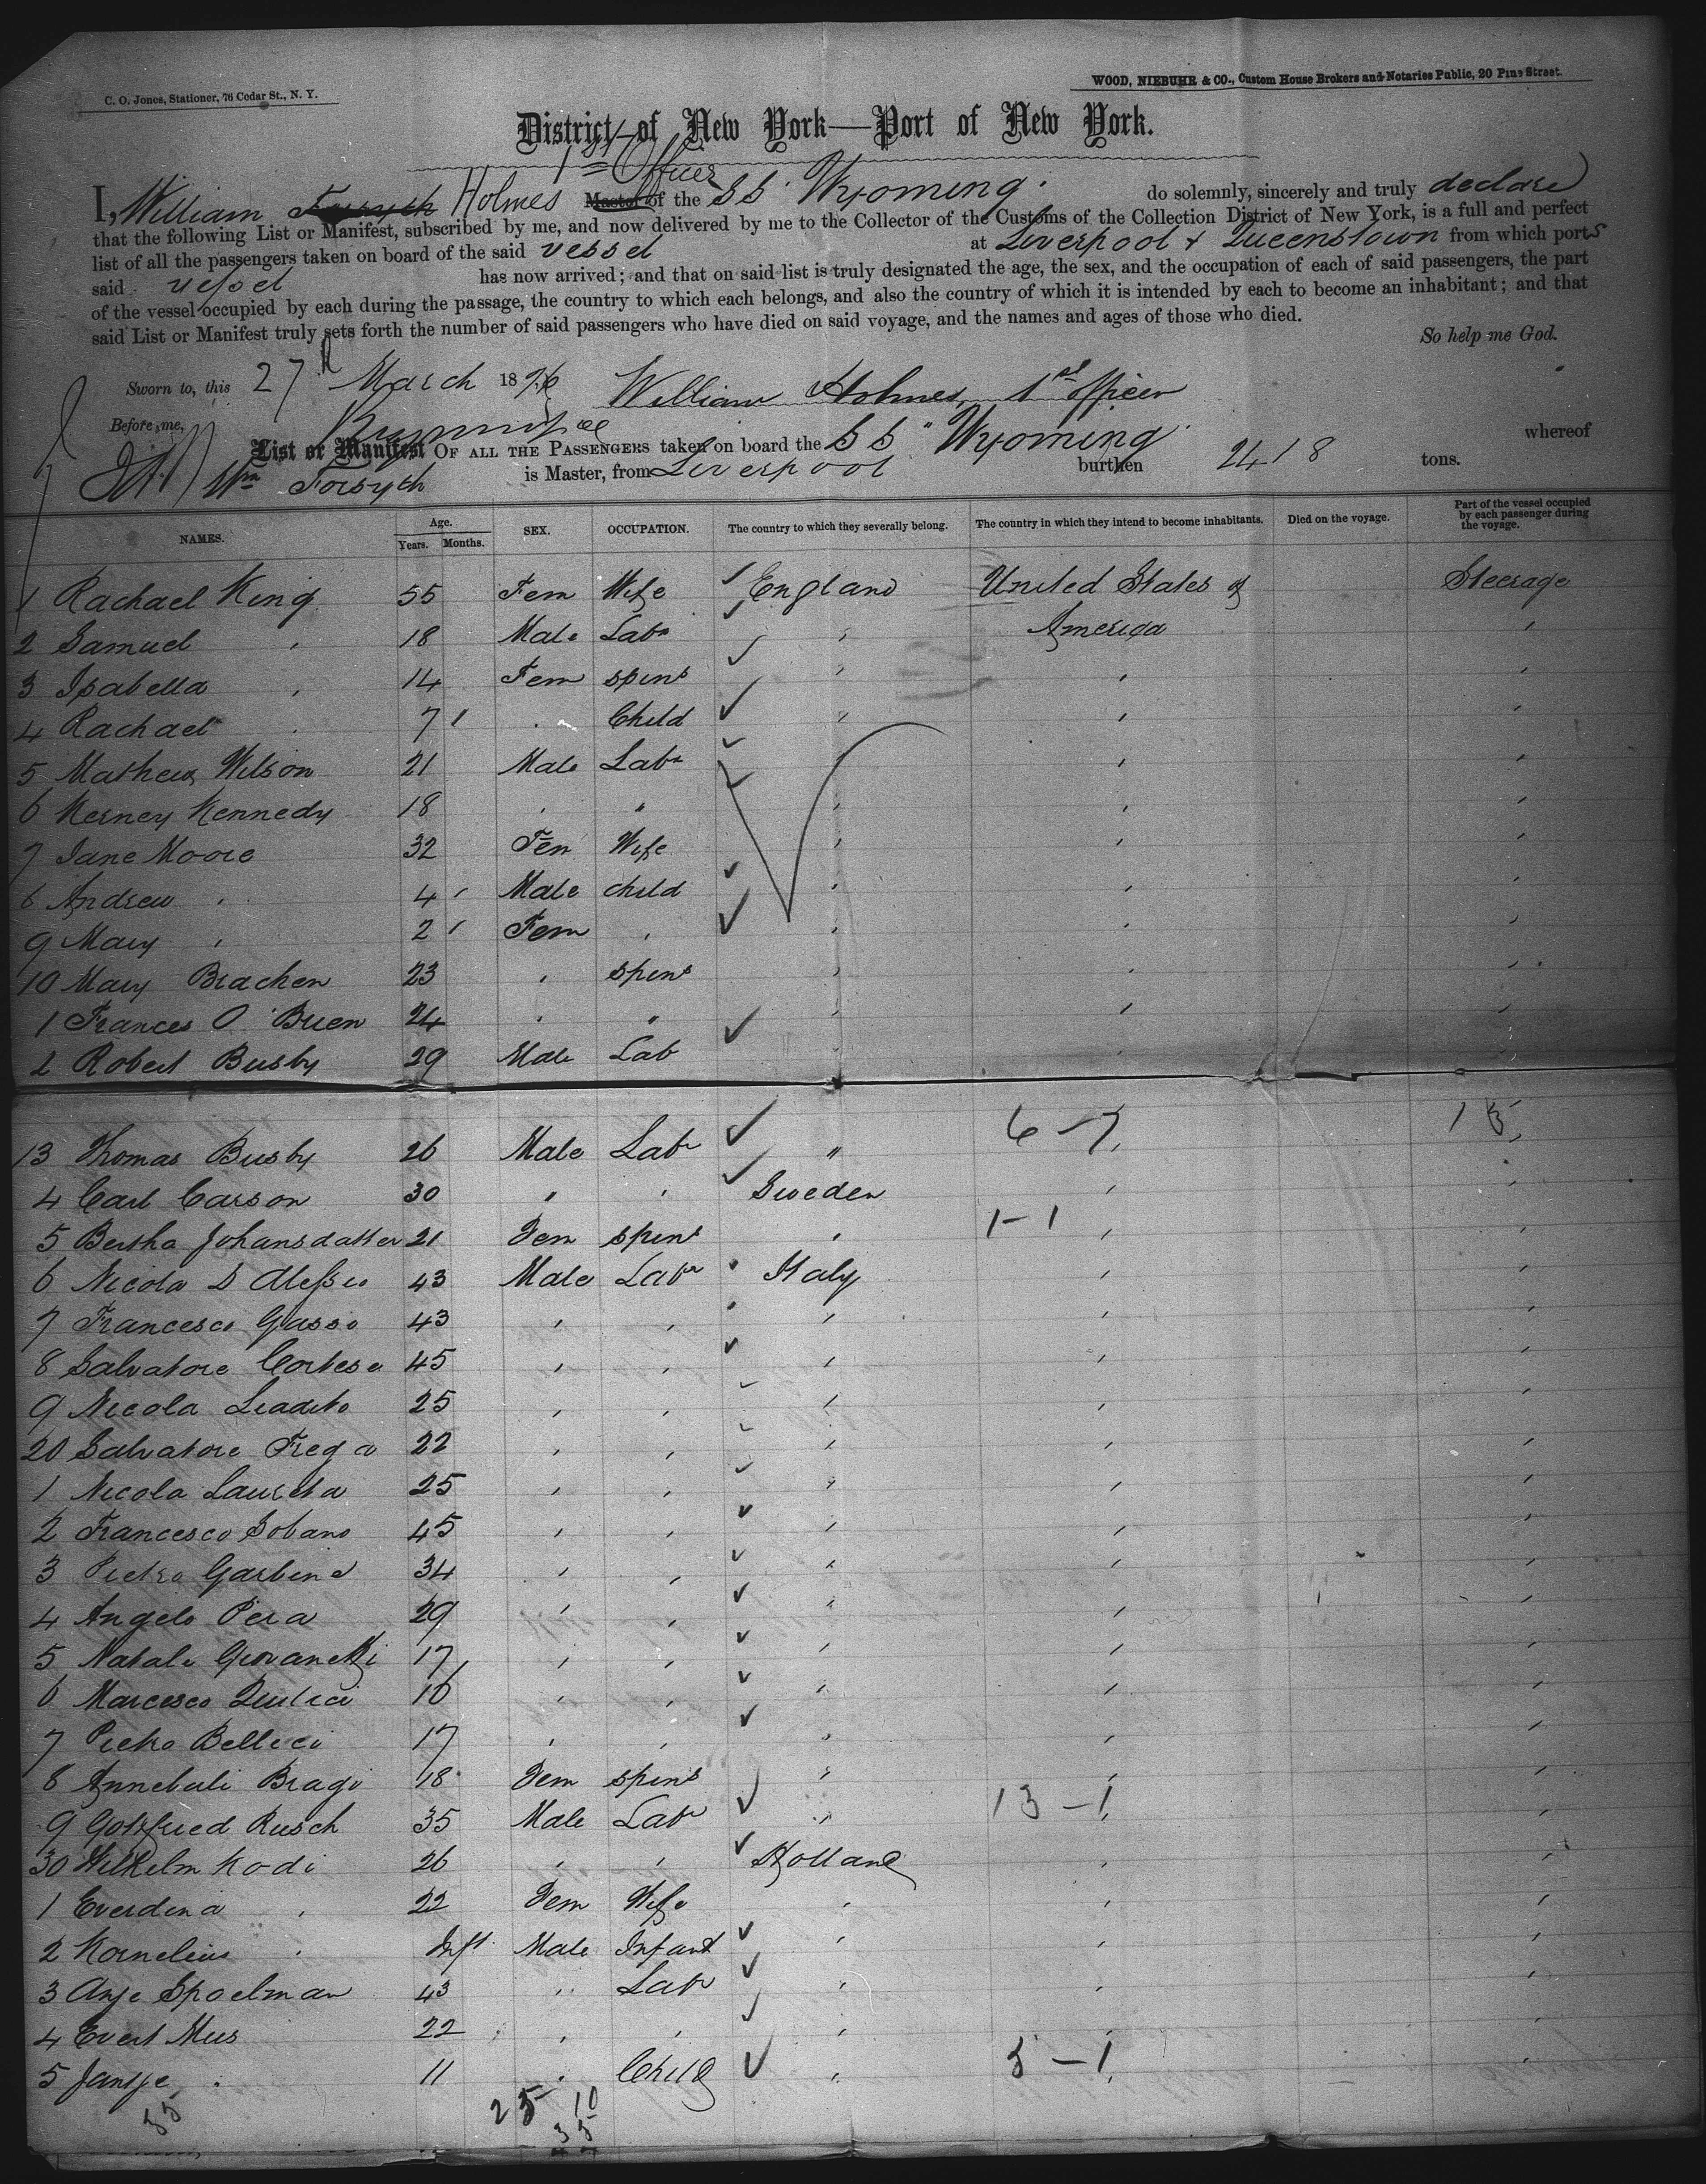 C. O. Jones, Stationer, 76 Cedar St., N. Y.
WOOD, NIEBUHR & CO., Custom House Brokers and Notaries Public, 20 Pine Street.
District of New York—Port of New York.
1st Officer
I, William Forsyth Holmes Master of the SS "Wyoming" do solemnly, sincerely and truly declare
that the following List or Manifest, subscribed by me, and now delivered by me to the Collector of the Customs of the Collection District of New York, is a full and perfect
list of all the passengers taken on board of the said vessel at Liverpool & Queenstown from which ports
said vessel has now arrived; and that on said list is truly designated the age, the sex, and the occupation of each of said passengers, the part
of the vessel occupied by each during the passage, the country to which each belongs, and also the country of which it is intended by each to become an inhabitant; and that
said List or Manifest truly sets forth the number of said passengers who have died on said voyage, and the names and ages of those who died.
So help me God.
Sworn to, this 27th March 1876 William Holmes, 1st officer
Before me,
List or Manifest OF ALL THE PASSENGERS taken on board the SS "Wyoming" whereof
Wm Forsyth is Master, from Liverpool burthen 2418 tons.
NAMES. Age. Years. Months. SEX. OCCUPATION. The country to which they severally belong. The country in which they intend to become inhabitants. Died on the voyage. Part of the vessel occupied by each passenger during the voyage.
1 Rachael King 55 Fem Wife England United States of Steerage
2 Samuel " 18 Male Labr " America "
3 Isabella " 14 Fem spins " " "
4 Rachael " 7 " Child " " "
5 Mathew Wilson 21 Male Labr " " "
6 Kerney Kennedy 18 " " " " "
7 Jane Moore 32 Fem Wife " " "
8 Andrew " 4 Male child " " "
9 Mary " 2 Fem " " " "
10 Mary Bracken 23 " spins " " "
1 Frances O'Brien 24 " " " " "
2 Robert Busby 29 Male Lab " " "
13 Thomas Busby 26 Male Labr " 6-7 " 13
4 Carl Carson 30 " " Sweden " "
5 Bertha Johansdatter 21 Fem spins " 1-1 " "
6 Nicola D Alessio 43 Male Labr Italy " "
7 Francesco Gasso 43 " " " " "
8 Salvatore Cortese 45 " " " " "
9 Nicola Liadito 25 " " " " "
20 Salvatore Frega 22 " " " " "
1 Nicola Laureta 25 " " " " "
2 Francesco Sobano 45 " " " " "
3 Pietro Garbino 34 " " " " "
4 Angelo Pera 29 " " " " "
5 Natale Giovanetti 17 " " " " "
6 Marcesco 16 " " " " "
7 Pietro Bellici 17 " " " " "
8 Annebali Bragi 18 Fem spins " " "
9 Gottfried Rusch 35 Male Labr " 13-1 " "
30 Wilhelm Kodi 26 " " Holland " "
1 Everdina " 22 Fem Wife " " "
2 Kornelius " Inft Male Infant " " "
3 Anje Spoelman 43 " Labr " " "
4 Evert Mus 22 " " " " "
5 Jantje " 11 " Child " 5-1 " "
35 25 10
35